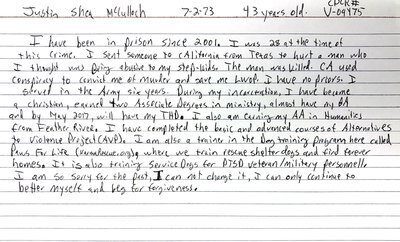 Justin Shea McCulloch 7-2-73 43 years old. CDCR# V-09175
I have been in prison since 2001. I was 28 at the time of
this crime. I sent someone to California from Texas to hurt a man who
I thought was being abusive to my step-kids. The man was killed. CA used
conspiracy to convict me of murder and gave me Lwop. I have no priors. I
served in the Army six years. During my incarceration, I have become
a christian, earned two Associate Degrees in ministry, almost have my BA
and by May 2017, will have my THD. I also am earning my AA in Humanities
from Feather River. I have completed the basic and advanced courses of Alternatives
to Violence Project (AVP). I am also a trainer in the Dog training program here called
Paws For Life where we train rescue shelter dogs and find forever
homes. It is also training Service Dogs for PTSD veteran/military personnel.
I am so sorry for the past, I can not change it, I can only continue to
better myself and beg for forgiveness.